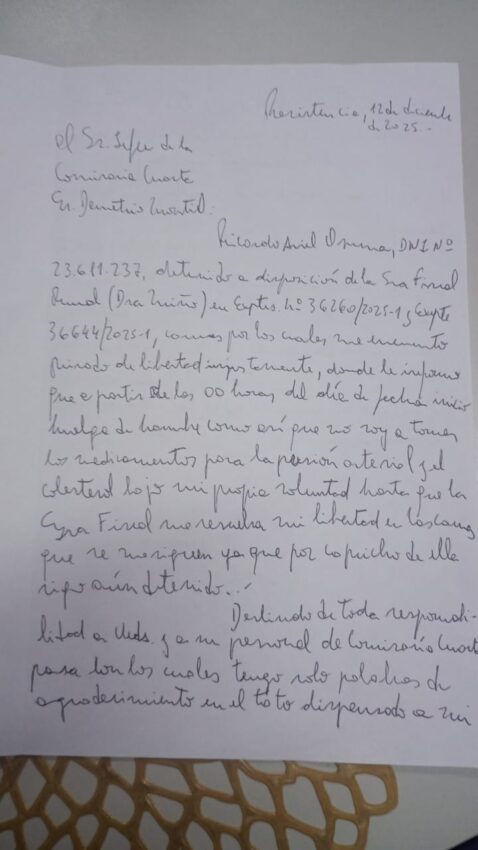 Resistencia, 12 de diciembre
de 2025.-
Al Sr. Jefe de la
Comisaria Cuarta
Cr. Demetrio Montiel:
Ricardo Ariel Osuna, DNI Nº
23.611.237, detenido a disposición de la Sra Fiscal
Penal (Dra Niño) en Exptes. nº 36260/2025-1 y Expte
36644/2025-1, causas por los cuales me encuentro
privado de libertad injustamente, donde le informo
que a partir de las 00 horas del día de fecha inicio
huelga de hambre como así que no voy a tomar
los medicamentos para la presión arterial y el
colesterol bajo mi propia voluntad hasta que la
Fiscal me resuelva mi libertad en las causas
que se me siguen ya que por capricho de ella
sigo aún detenido.-
Deslindo de toda responsabi-
lidad a Uds. y a su personal de Comisaría Cuarta
para con los cuales tengo solo palabras de
agradecimiento en el trato dispensado a mi